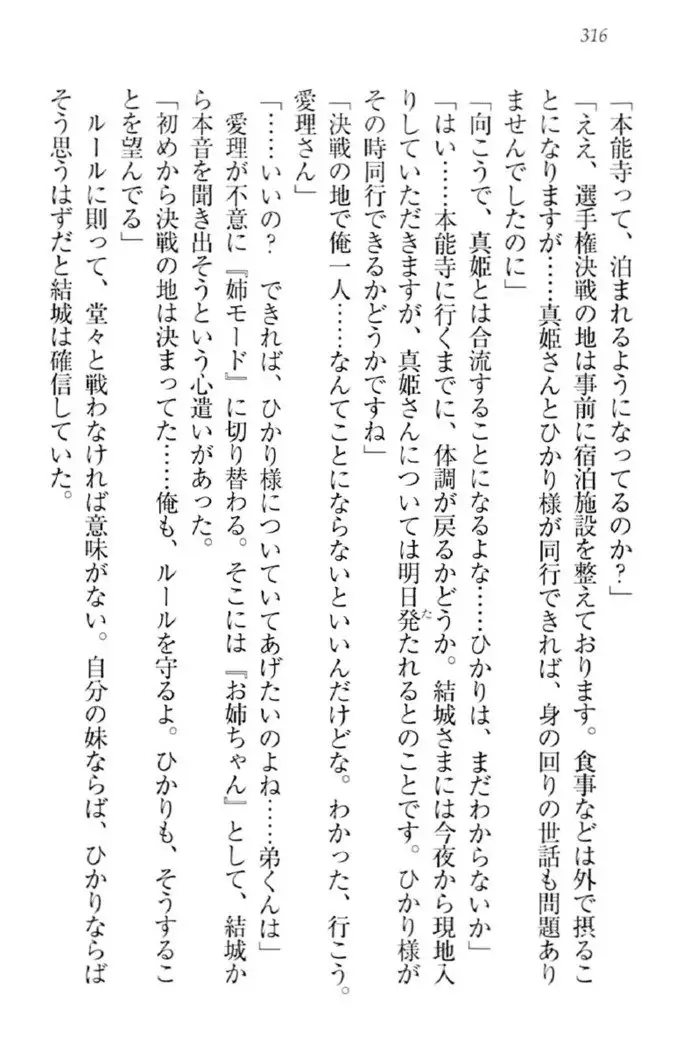 316
「本能寺って、泊まれるようになってるのか?」
「ええ、選手権決戦の地は事前に宿泊施設を整えております。食事などは外で摂るこ
とになりますが……真姫さんとひかり様が同行できれば、身の回りの世話も問題あり
ませんでしたのに」
「向こうで、真姫とは合流することになるよな……ひかりは、まだわからないか」
「はい……本能寺に行くまでに、体調が戻るかどうか。結城さまには今夜から現地入
りしていただきますが、真姫さんについては明日発たれるとのことです。ひかり様が
その時同行できるかどうかですね」
「決戦の地で俺一人……なんてことにならないといいんだけどな。わかった、行こう。
愛理さん」
「……いいの? できれば、ひかり様についていてあげたいのよね……弟くんは」
愛理が不意に『姉モード』に切り替わる。そこには『お姉ちゃん』として、結城か
ら本音を聞き出そうという心遣いがあった。
「初めから決戦の地は決まってた……俺も、ルールを守るよ。ひかりも、そうするこ
とを望んでる」
ルールに則って、堂々と戦わなければ意味がない。自分の妹ならば、ひかりならば
そう思うはずだと結城は確信していた。